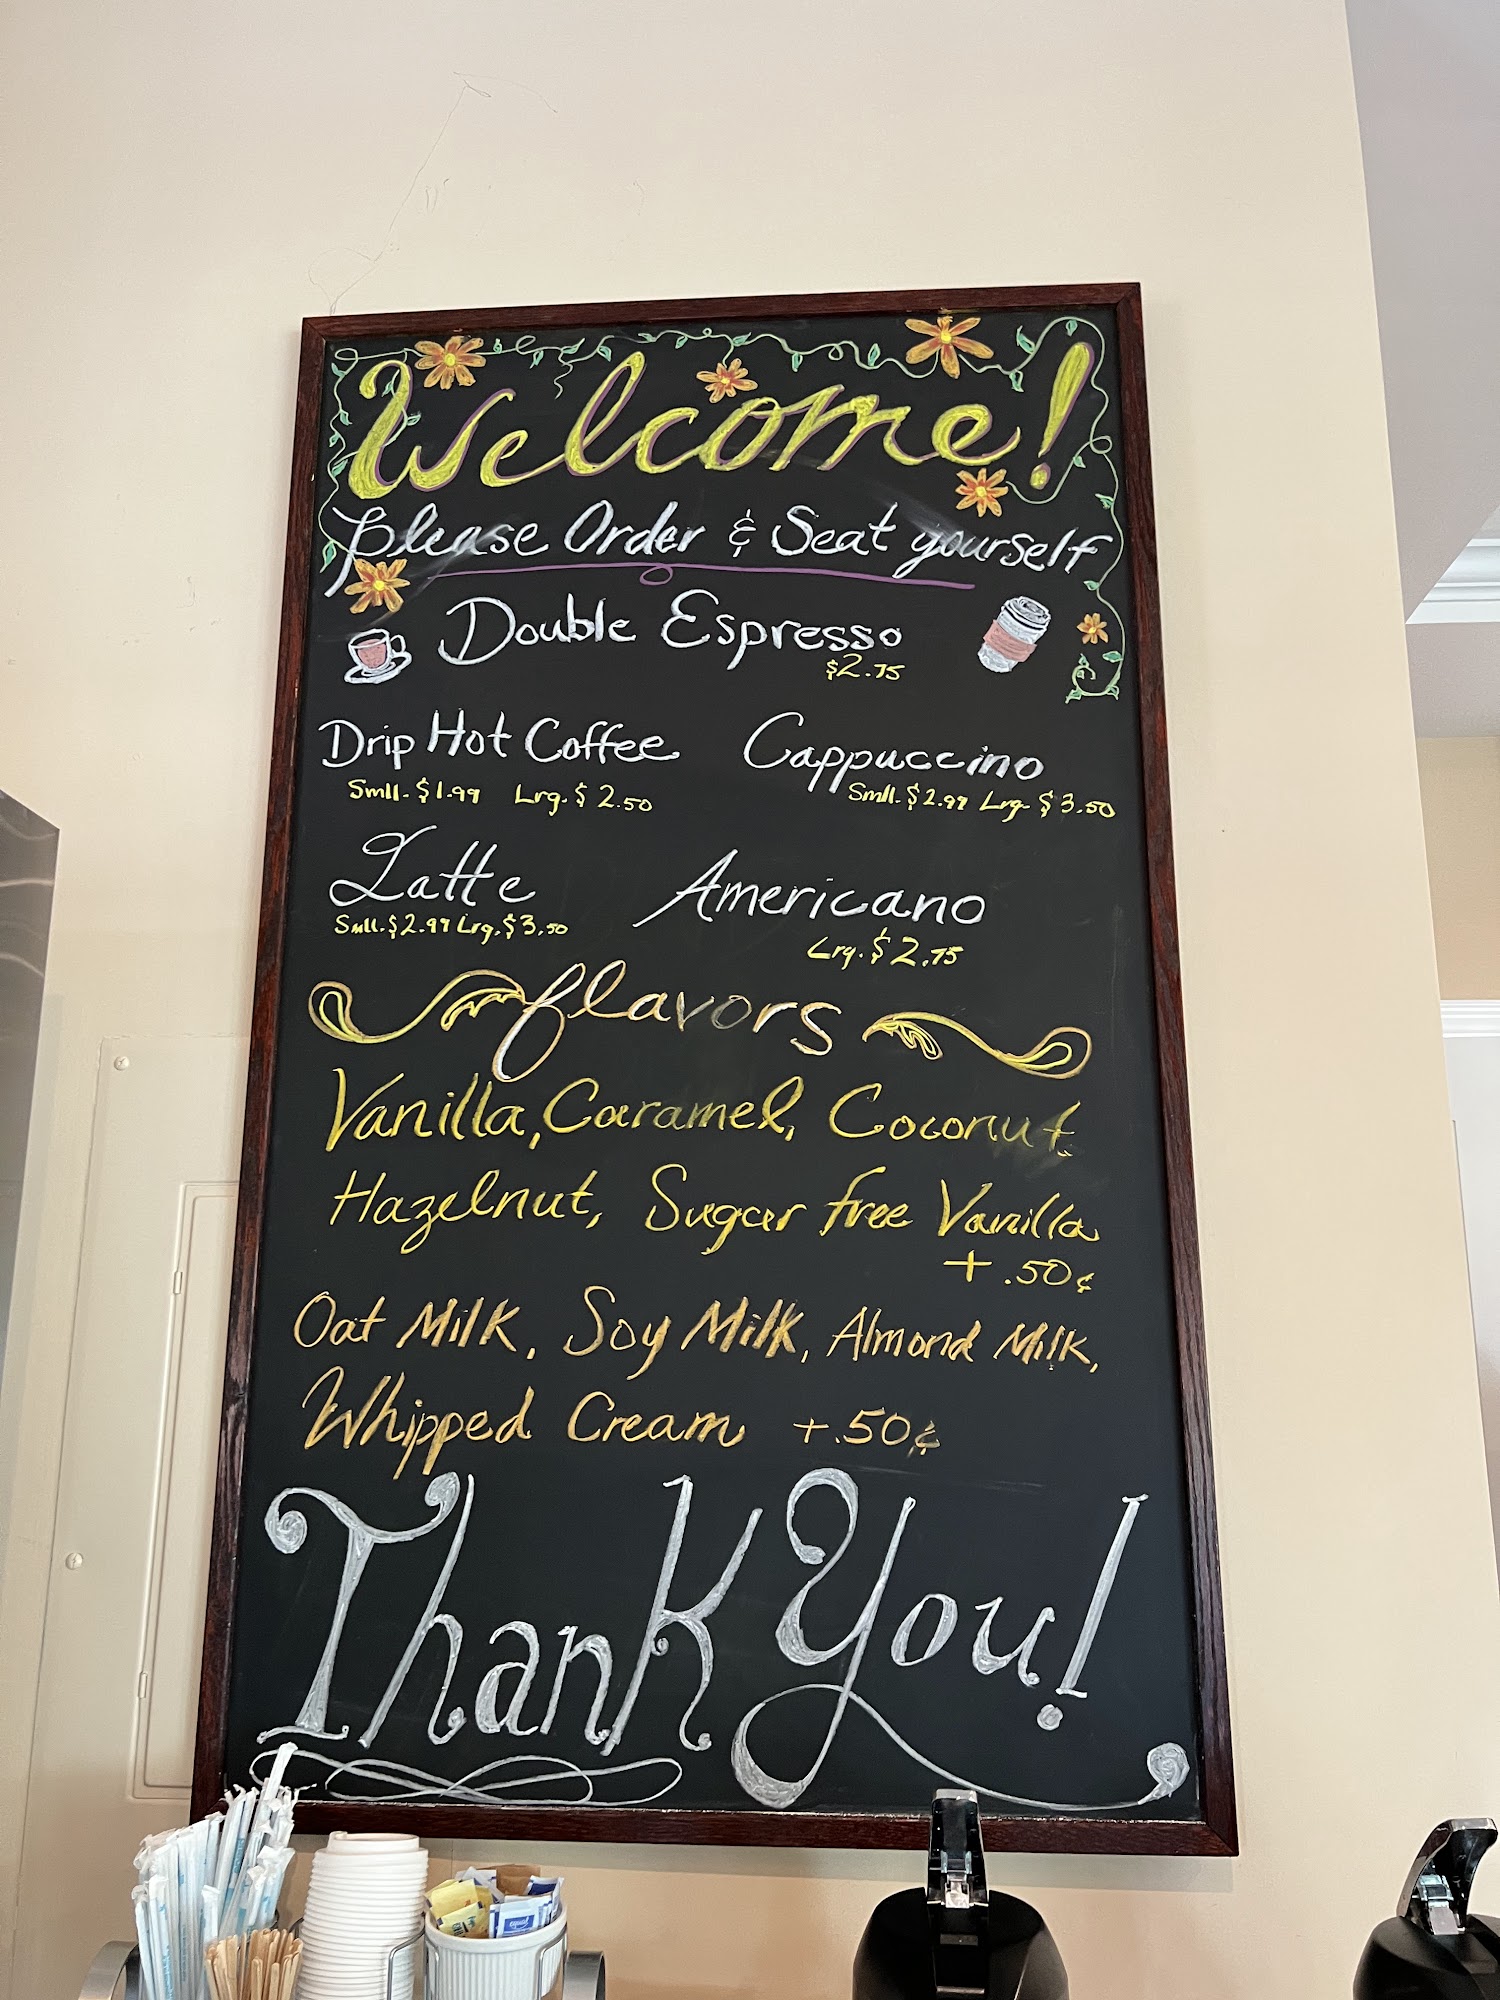 Welcome!
Please Order & Seat yourself
Double Espresso
$2.75
Drip Hot Coffee
Smll. $1.99 Lrg. $2.50
Cappuccino
Smll. $2.99 Lrg. $3.50
Latte
Smll. $2.99 Lrg. $3.50
Americano
Lrg. $2.75
flavors
Vanilla, Caramel, Coconut,
Hazelnut, Sugar free Vanilla
+ .50¢
Oat Milk, Soy Milk, Almond Milk,
Whipped Cream +.50¢
Thank You!